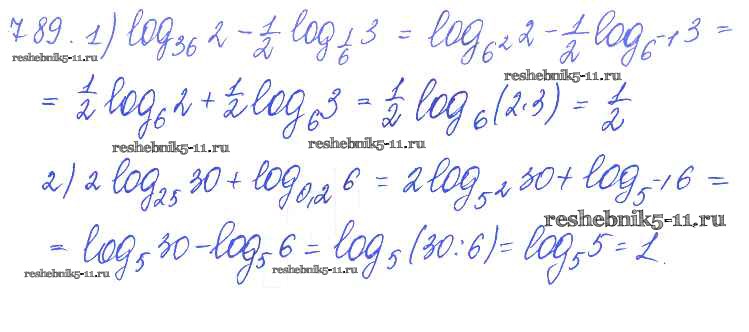 789. 1) log₃₆ 2 − 1/2 log_{1/6} 3 = log_{6²} 2 − 1/2 log_{6⁻¹} 3 =
reshebnik5-11.ru
reshebnik5-11.ru
= 1/2 log₆ 2 + 1/2 log₆ 3 = 1/2 log₆ (2·3) = 1/2
reshebnik5-11.ru
reshebnik5-11.ru
2) 2 log₂₅ 30 + log_{0,2} 6 = 2 log_{5²} 30 + log_{5⁻¹} 6 =
reshebnik5-11.ru
= log₅ 30 − log₅ 6 = log₅ (30:6) = log₅ 5 = 1.
reshebnik5-11.ru
reshebnik5-11.ru